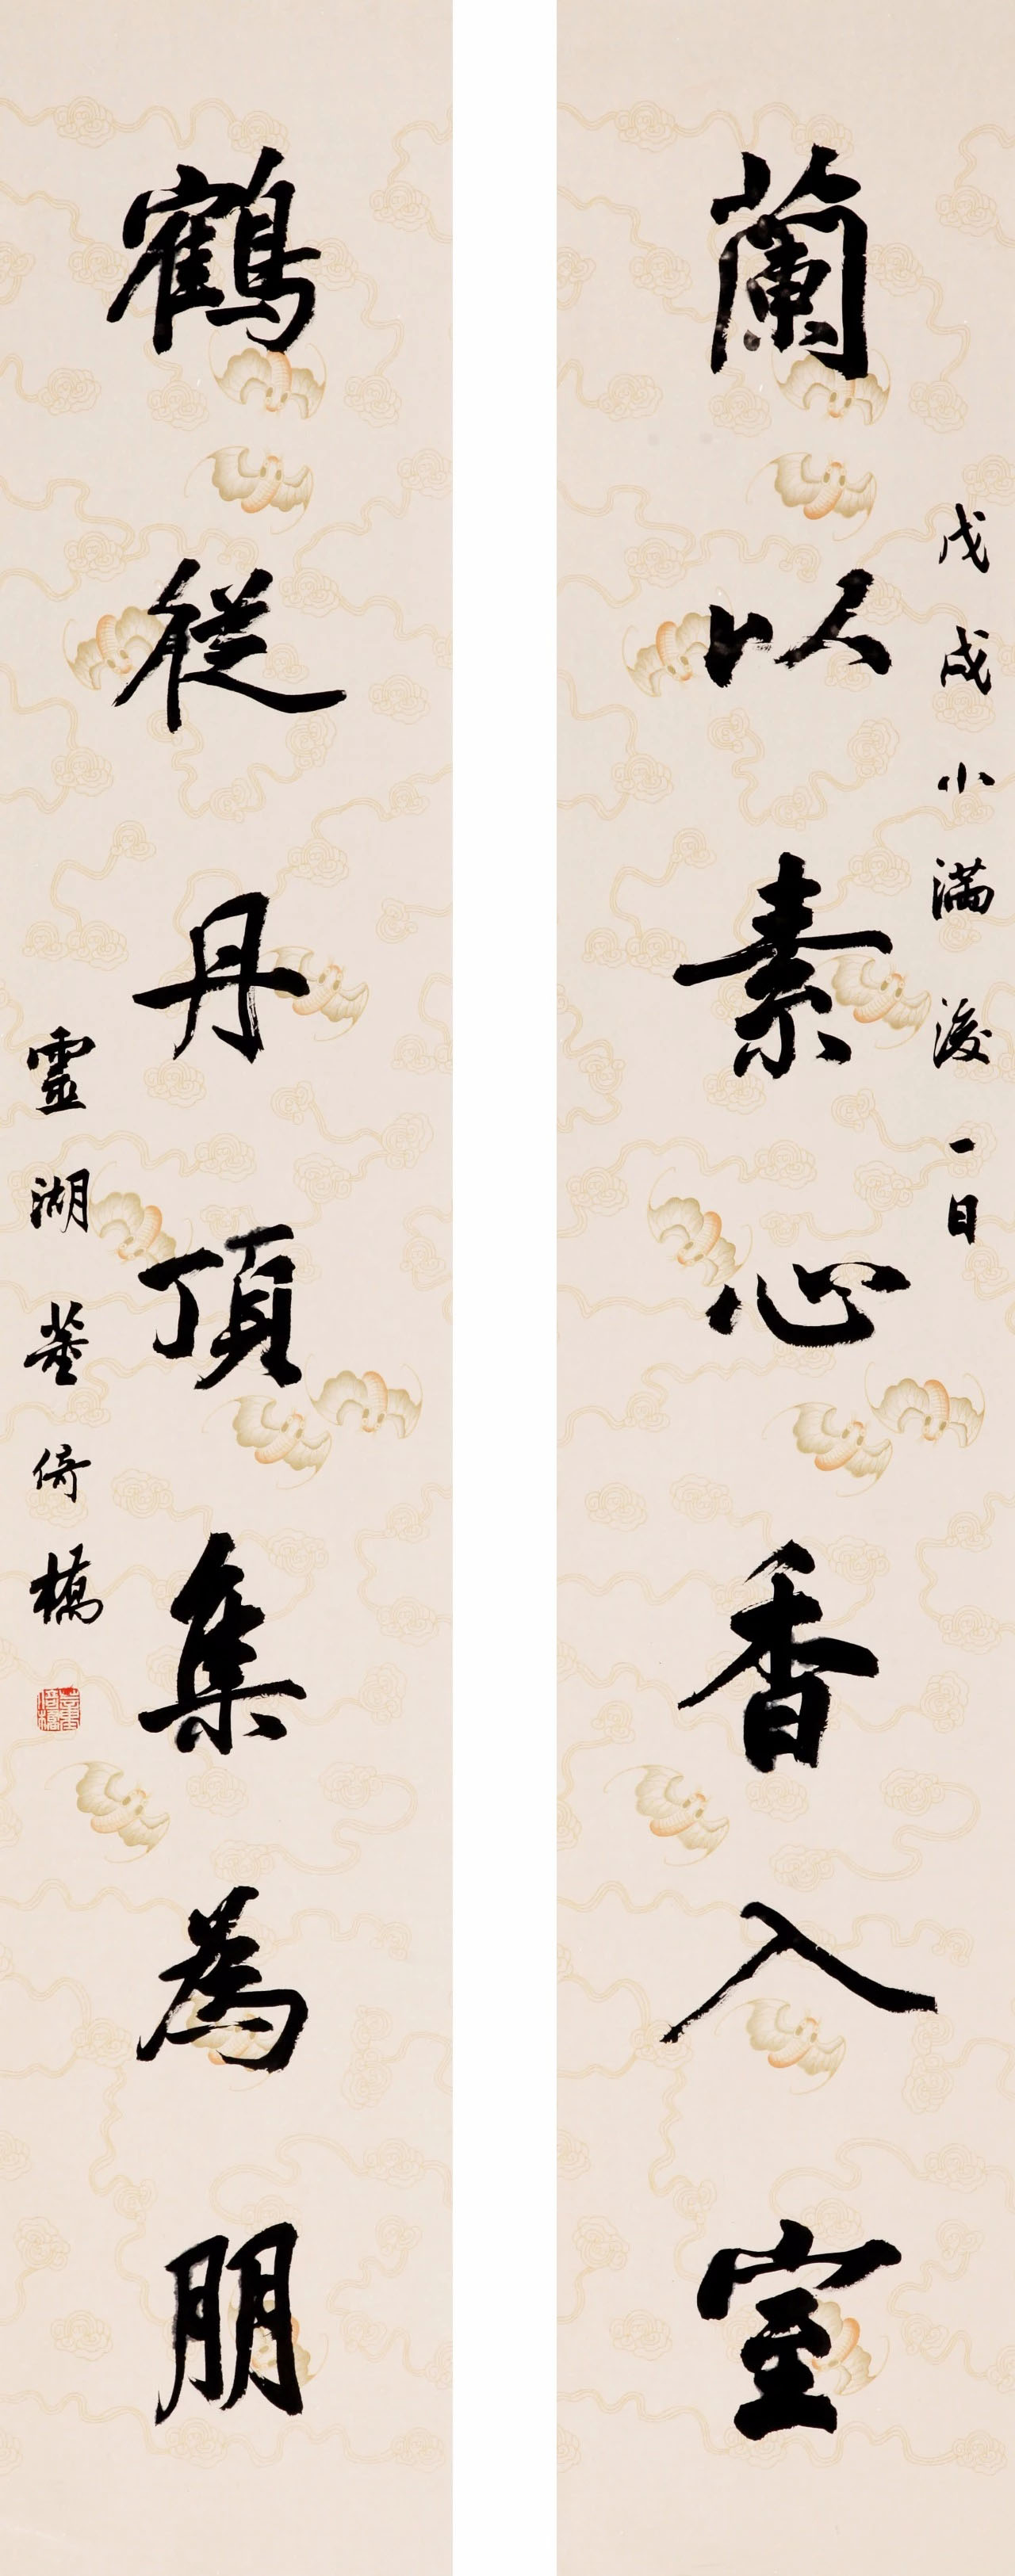 戊戌小滿後一日
蘭以素心香入室
鶴從丹頂集為朋
靈湖董倚橋